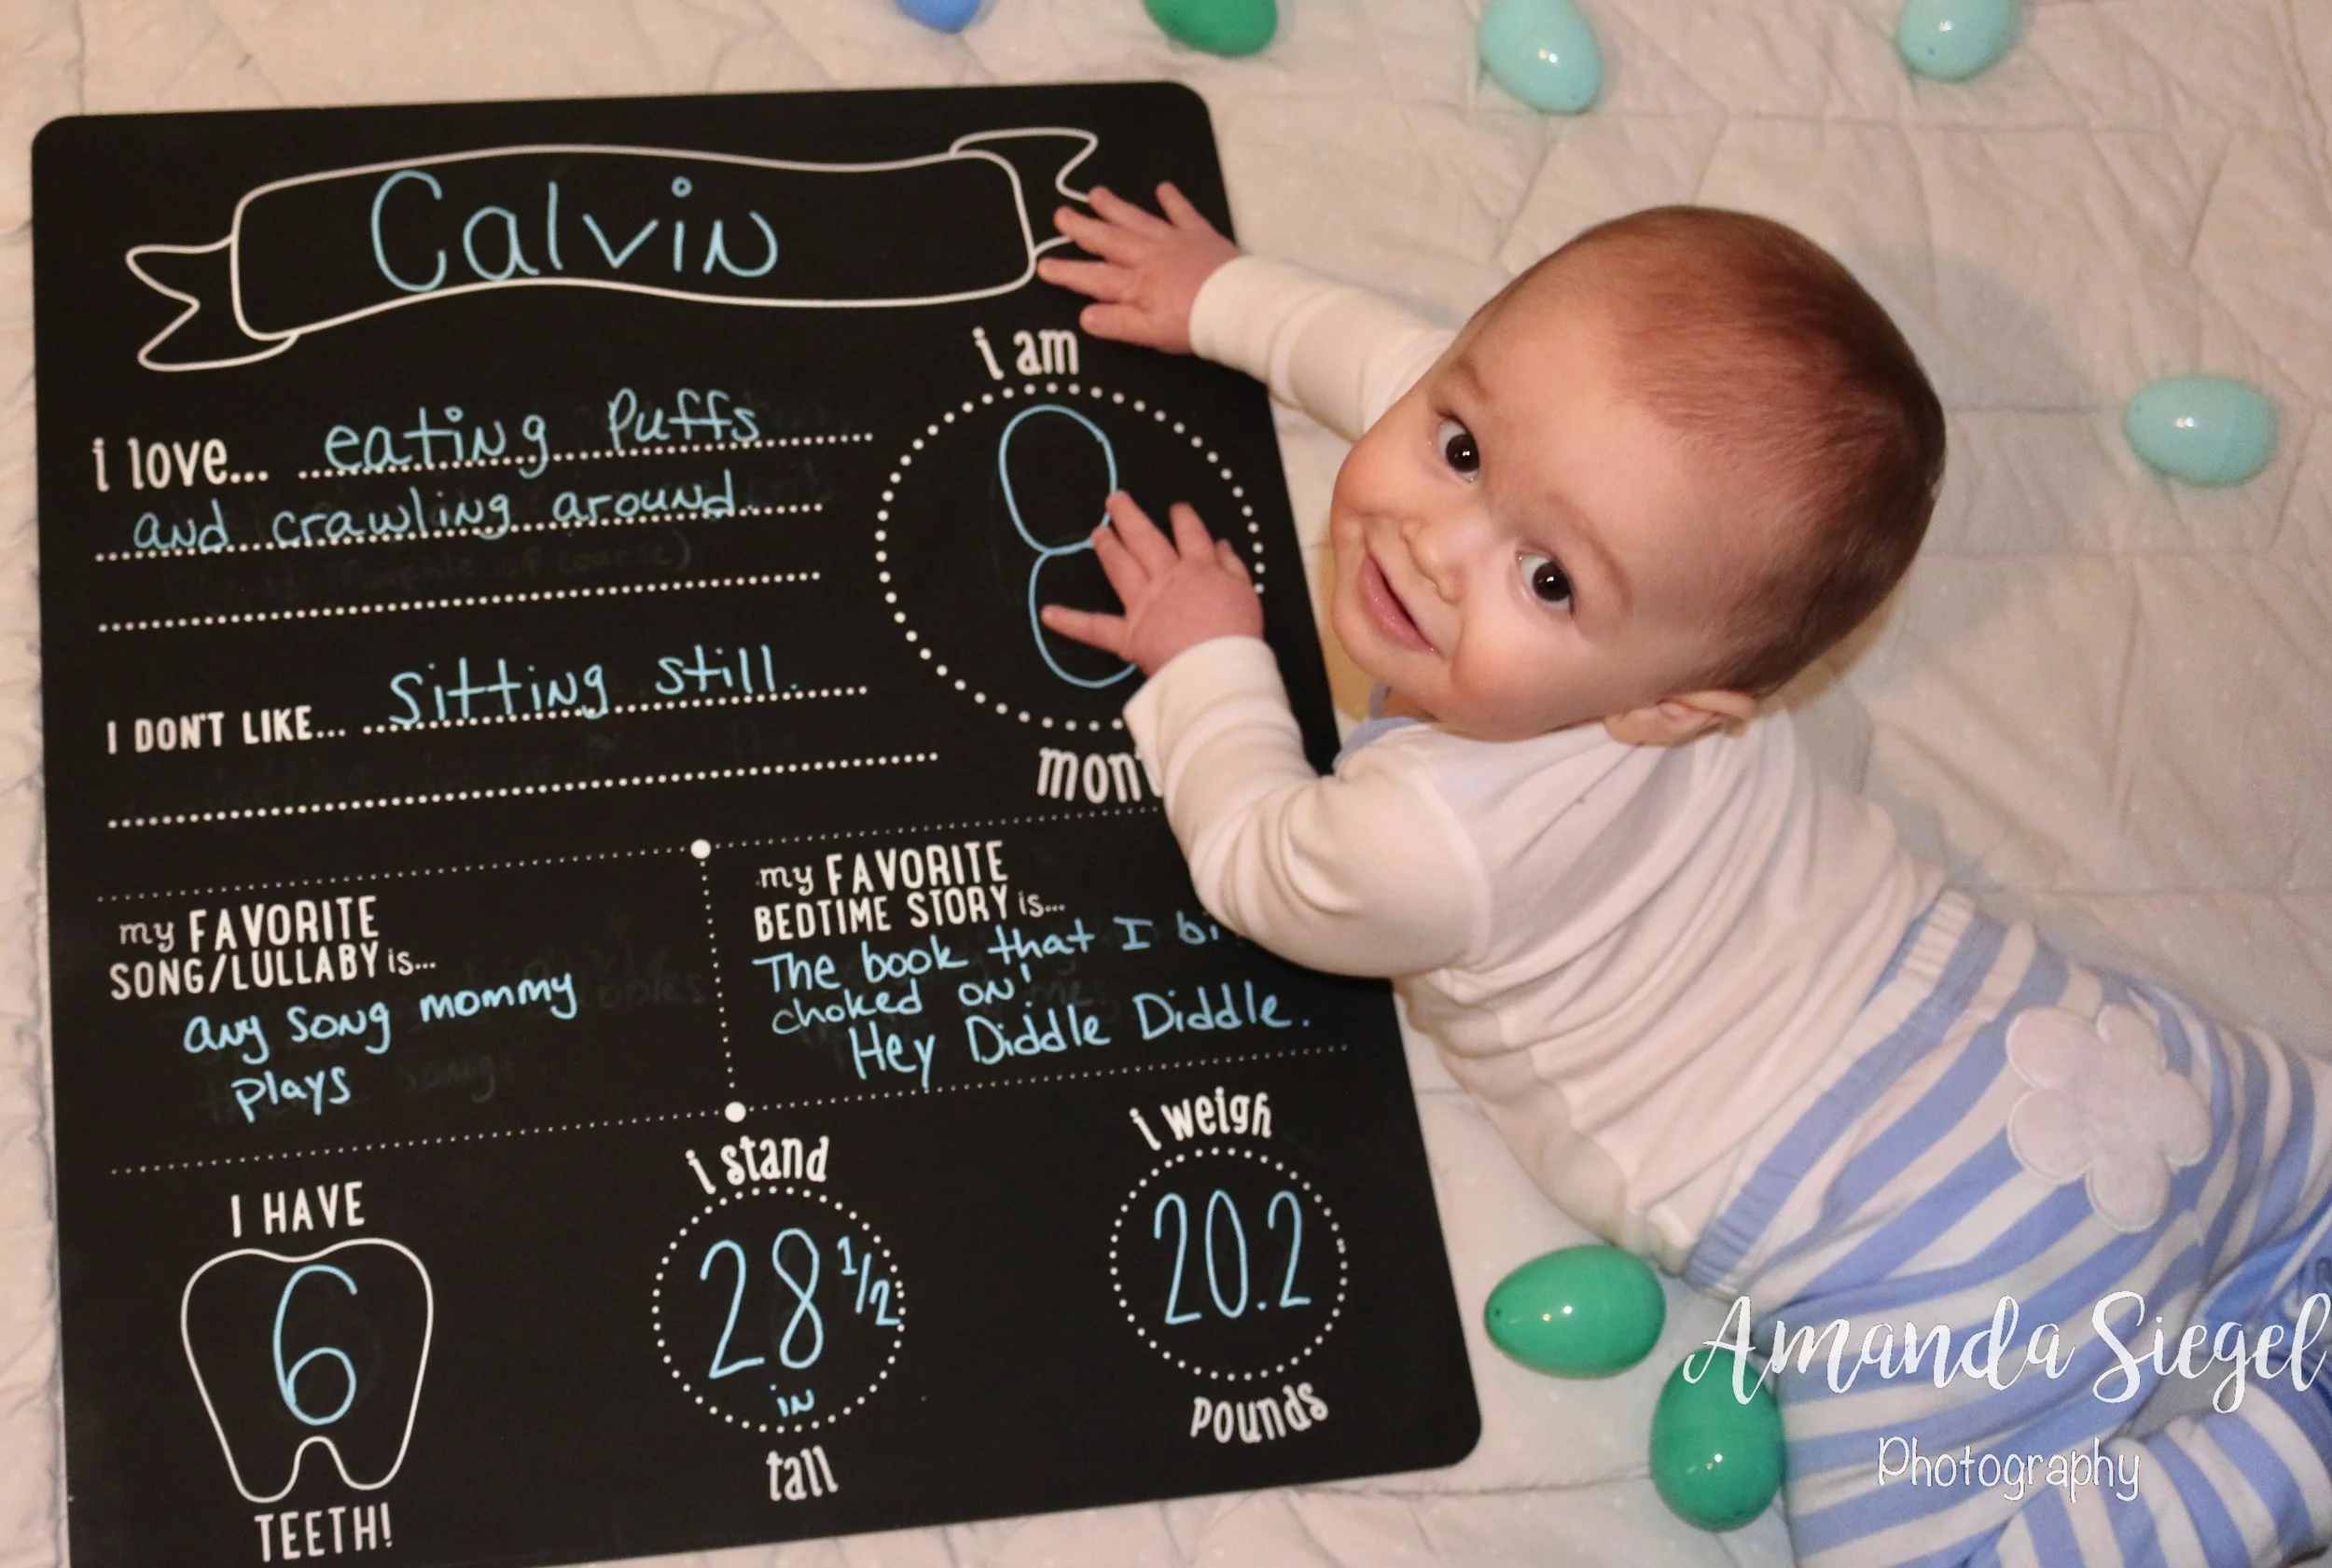 Calvin
i am
8
mont
i love... eating Puffs
and crawling around.
I DON'T LIKE... Sitting still.
my FAVORITE
SONG/LULLABY is...
any song mommy
plays
my FAVORITE
BEDTIME STORY is...
The book that I bi
choked on!
Hey Diddle Diddle.
I HAVE
6
TEETH!
i stand
28 1/2
in
tall
i weigh
20.2
pounds
Amanda Siegel
Photography